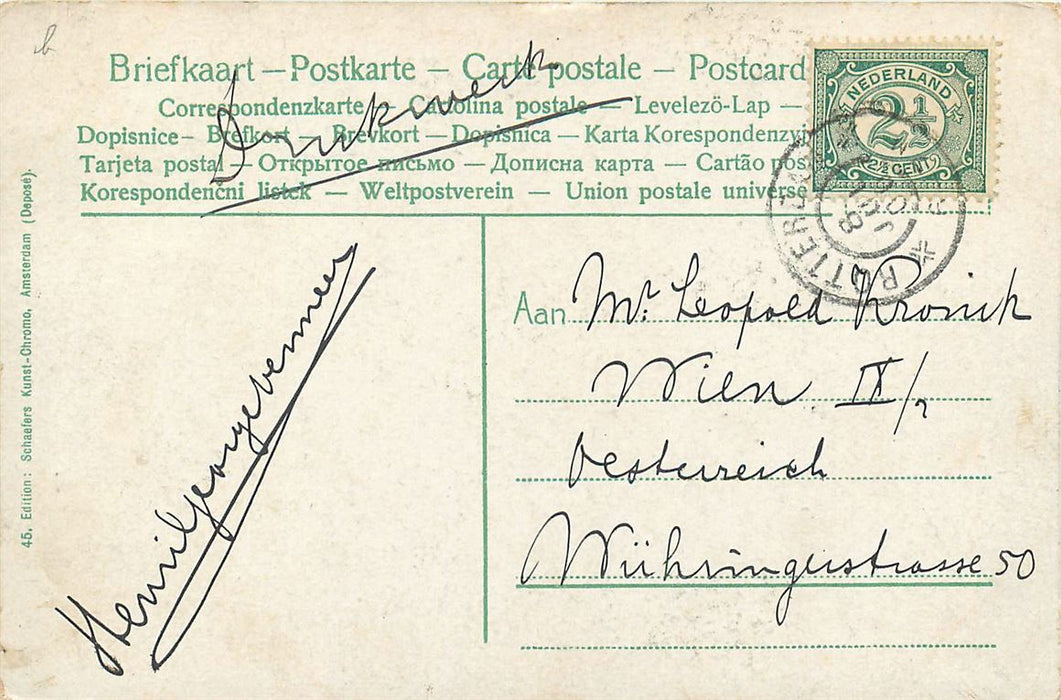 b
Briefkaart — Postkarte — Carte postale — Postcard
Correspondenzkarte — Cartolina postale — Levelezö-Lap —
Dopisnice — Brefkort — Brevkort — Dopisnica — Karta Korespondenzyi
Tarjeta postal — Открытое письмо — Дописна карта — Cartão pos
Korespondencni listek — Weltpostverein — Union postale universe
Drukwerk
NEDERLAND
2½
2½ CENT
ROTTERDAM
45. Edition: Schaefers Kunst-Chromo, Amsterdam (Deposé).
Aan Mr. Leopold Kronik
Wien IX/2
Oesterreich
Währingerstrasse 50